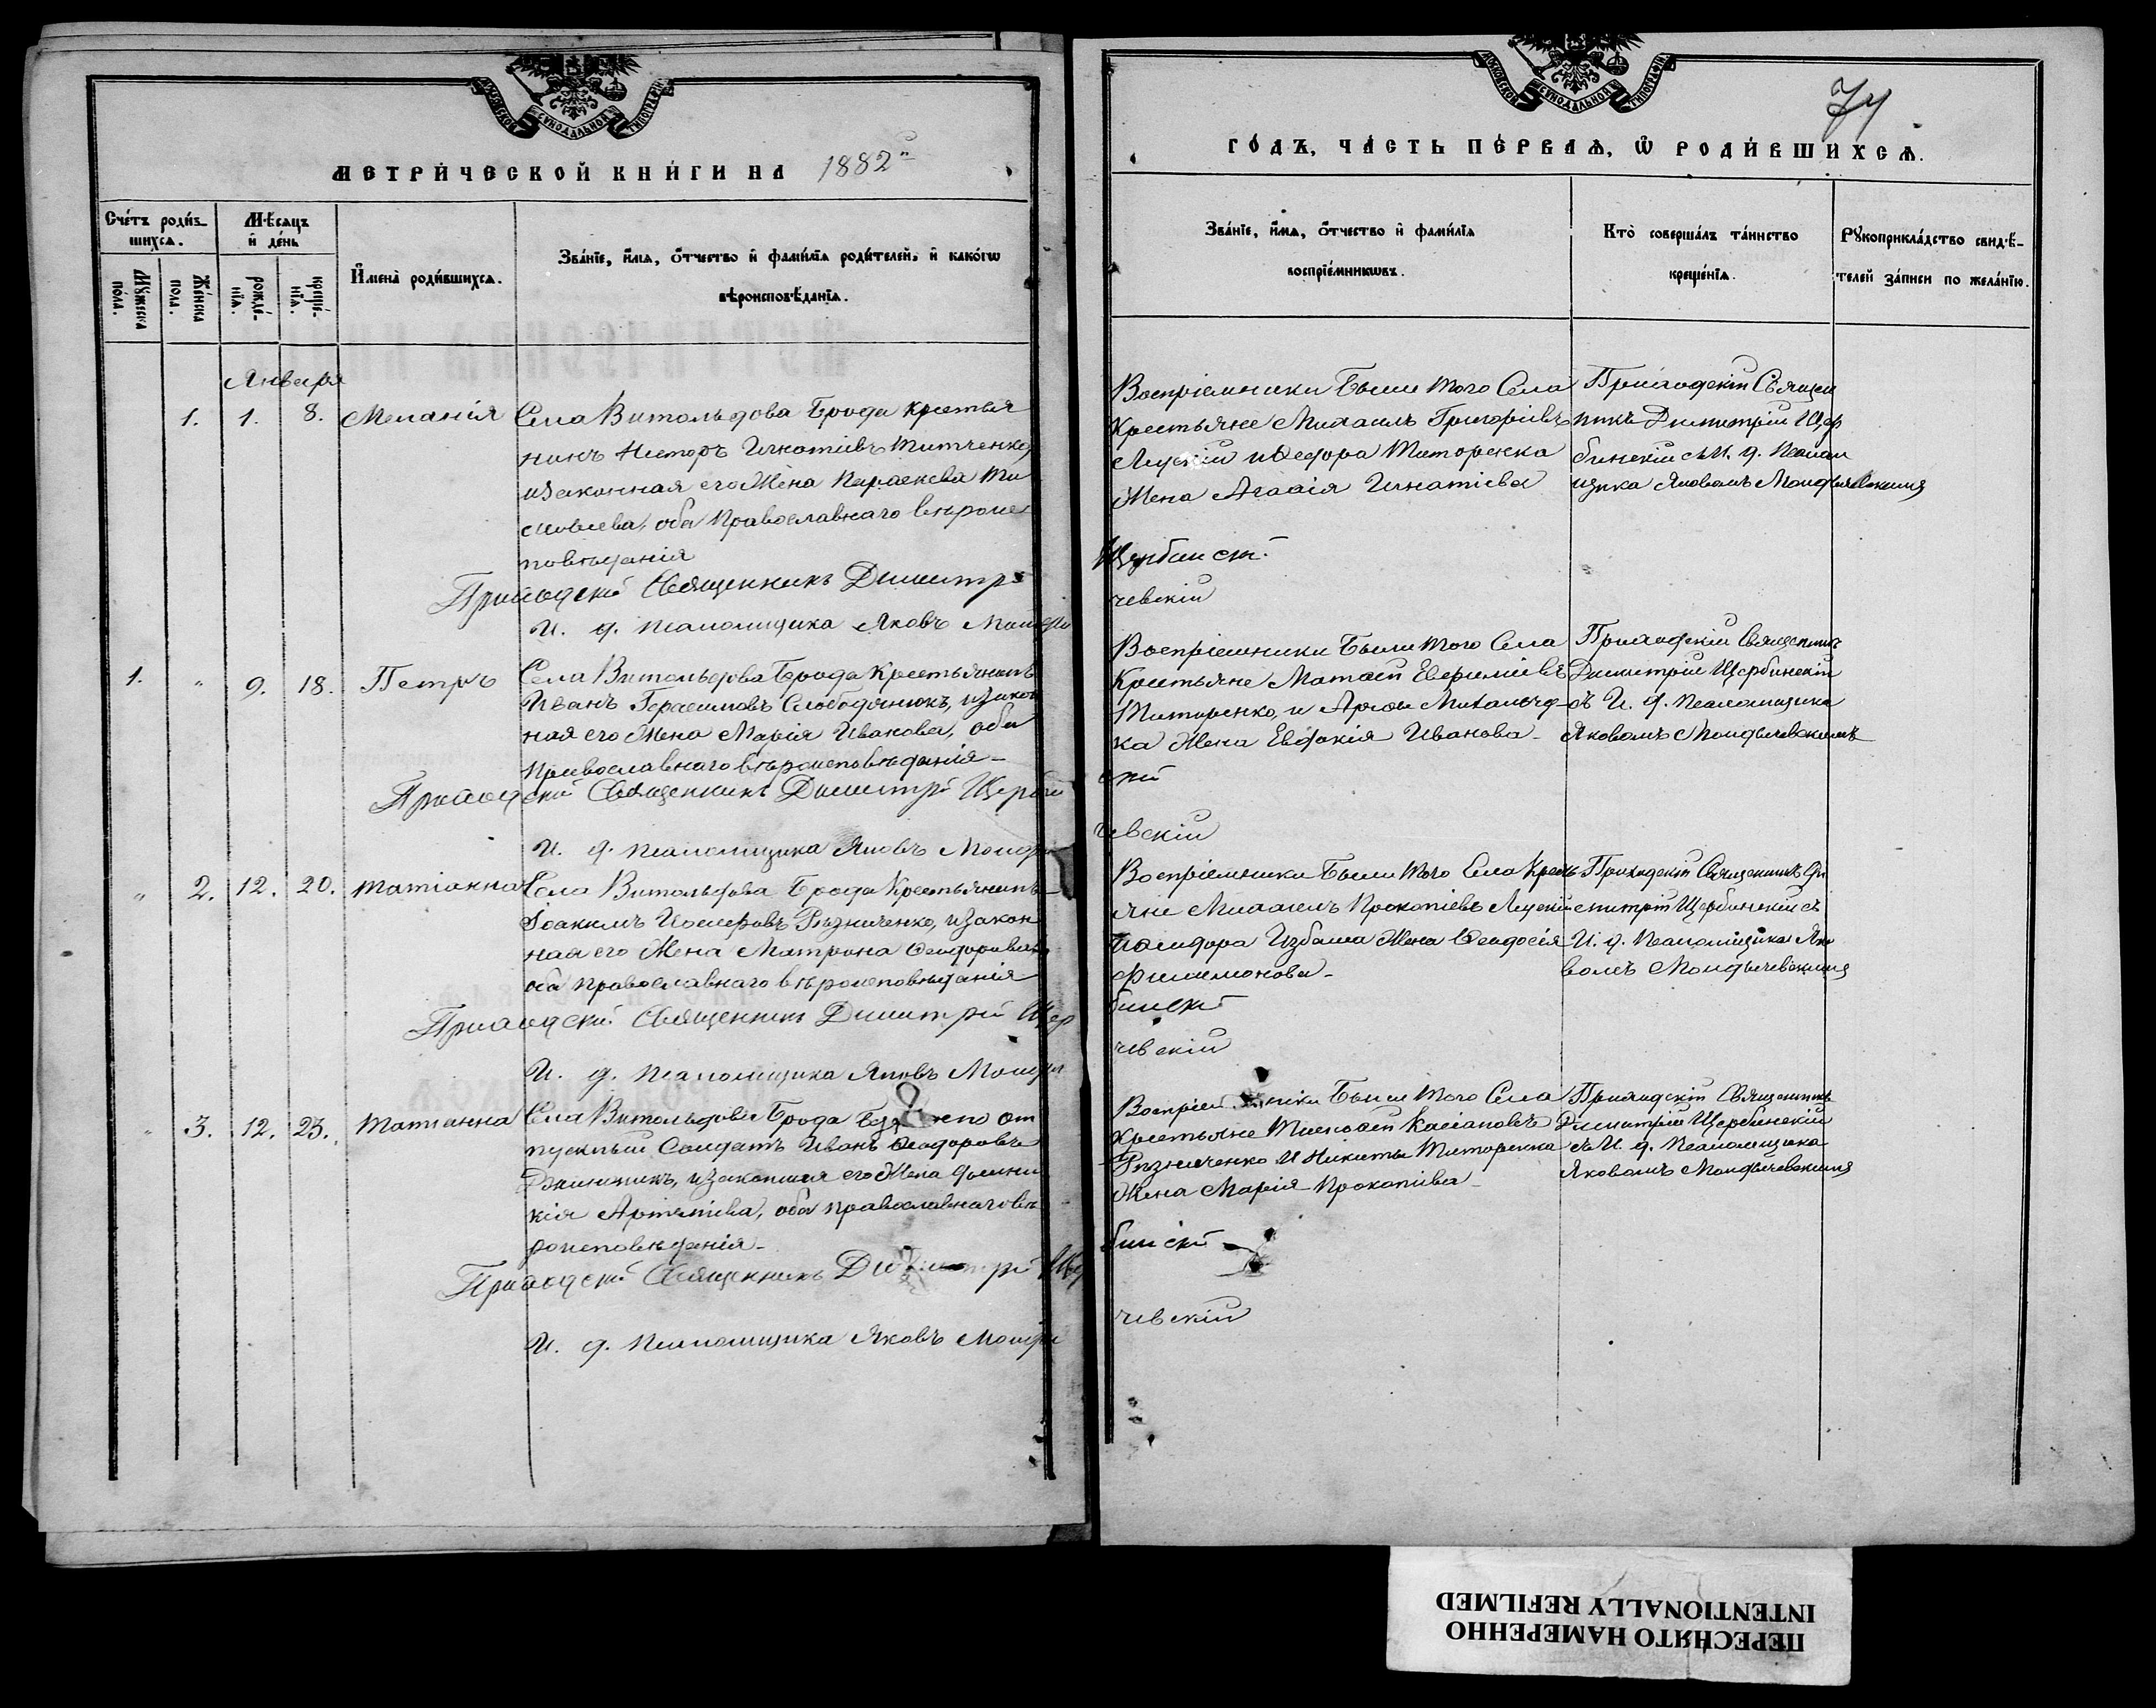 МОСКОВСКОЙ СѴНОДАЛЬНОЙ ТИПОГРАФІИ
МЕТРИ́ЧЕСКОЙ КНИ́ГИ НА 1882
Сче́тъ роди́в-
шихсѧ.
Мѣ́сѧцъ
и҆ де́нь
Мꙋ́жеска
по́ла.
Же́нска
пола.
рожде́-
нїѧ.
креще́-
нїѧ.
И҆мена̀ роди́вшихсѧ.
Зва́нїе, и҆́мѧ, ѻ҆́тчество и҆ фамѝлїѧ роди́телей, и҆ како́гѡ
вѣроисповѣ́данїѧ.
Января
1. 1. 8. Меланія
Села Витольдова Брода крестья
нинъ Несторъ Игнатіевъ Титченко,
и законная его Жена Параскева Ти
моѳеева, оба Православнаго вѣроис
повѣданія
Приходскій Священникъ Димитрій
И. д. псаломщика Яковъ
1. " 9. 18. Петръ
Села Витольдова Брода Крестьянинъ
Иванъ Герасимовъ Слободянюкъ, и закон
ная его Жена Марія Иванова, оба
Православнаго вѣроисповѣданія-
Приходскій Священникъ Димитрій Щерби
И. д. псаломщика Яковъ
" 2. 12. 20. Татіанна
Села Витольдова Брода Крестьянинъ
Іоакимъ Иосифовъ Рѣзниченко, и закон
ная его Жена Матрона
оба православнаго вѣроисповѣданія
Приходскій Священникъ Димитрій Щер
И. д. псаломщика Яковъ
" 3. 12. 23. Татіанна
Села Витольдова Брода от
пускный Солдатъ Иванъ Ѳеодоровъ
и законная его Жена
кія оба православнаго вѣ
роисповѣданія-
Приходскій Священникъ Димитрій Щер
И. д. псаломщика Яковъ
МОСКОВСКОЙ СѴНОДАЛЬНОЙ ТИПОГРАФІИ
74
ГО́ДЪ, ЧА́СТЬ ПЕ́РВАѦ, Ѡ҆ РОДИ́ВШИХСѦ.
Зва́нїе, и҆́мѧ, ѻ҆́тчество и҆ фами́лїѧ
воспрїе́мникѡвъ.
Кто̀ соверша́лъ та́инство
креще́нїѧ.
Рꙋкоприкла́дство свидѣ́-
телей за́писи по жела́нїю.
Воспріемники Были того Села
Крестьяне Михаилъ Григоріевъ
и Ѳедора Титоренка
Жена Агафія Игнатіева
Приходскій Священ
никъ Димитрій Щер
бинскій съ И. д. Псалом
щика Яковомъ
Щербинскій
чевскій
Воспріемники Были того Села
Крестьяне Матѳей Евфиміевъ
Титоренко, и
ка Жена Евдокія Иванова-
Приходскій Священникъ
Димитрій Щербинскій
съ И. д. Псаломщика
Яковомъ
скій
чевскій
Воспріемники Были того Села Кресть
яне Михаилъ Прокопіевъ
Жена Ѳеодосія
Филимонова-
Приходскій Священникъ Ди
митрій Щербинскій съ
И. д. Псаломщика Яко
вомъ
бинскій
чевскій
Воспріемники Были того Села
Крестьяне Тимоѳей Касіановъ
Рѣзниченко И Никиты Титоренка
Жена Марія Прокопіева-
Приходскій Священникъ
Димитрій Щербинскій
съ И. д. Псаломщика
Яковомъ
бинскій
чевскій
ПЕРЕСНЯТО НАМЕРЕННО
INTENTIONALLY REFILMED